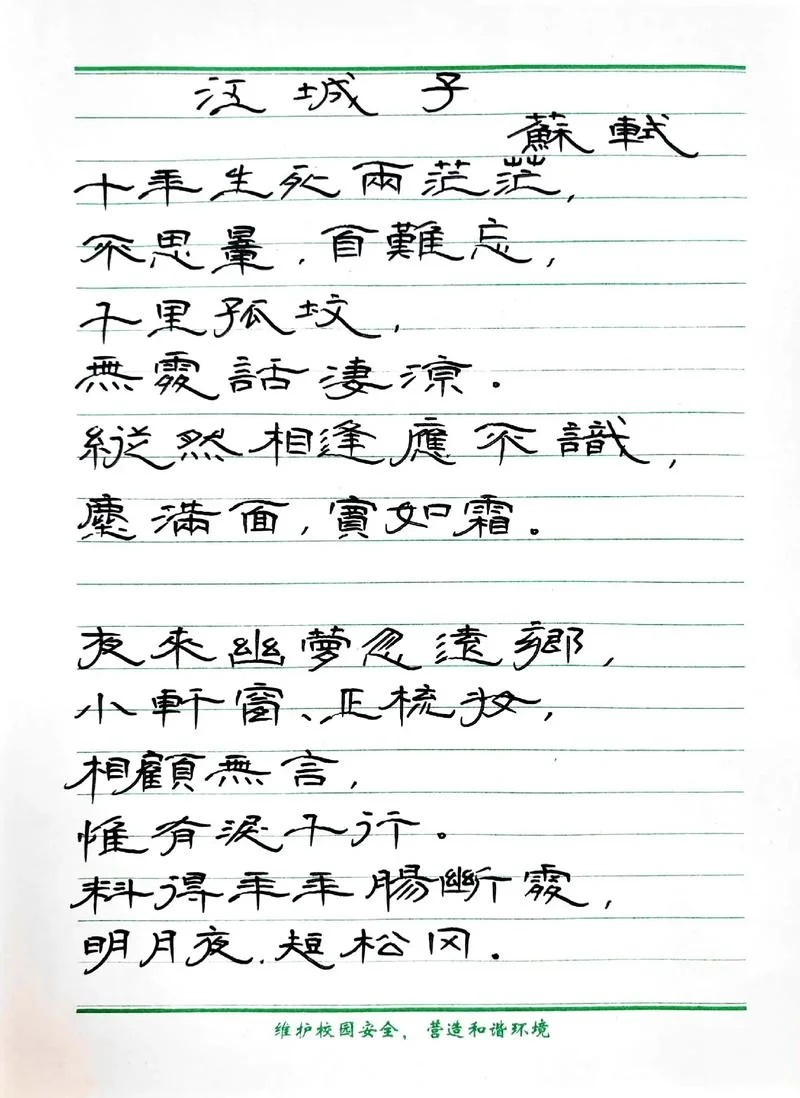 江城子
蘇軾
十年生死兩茫茫,
不思量,自難忘,
千里孤坟,
無處話淒涼.
縱然相逢應不識,
塵滿面,鬢如霜。
夜來幽夢忽還鄉,
小軒窗、正梳妆,
相顧無言,
惟有淚千行。
料得年年腸斷處,
明月夜.短松冈.
维护校园安全，营造和谐环境